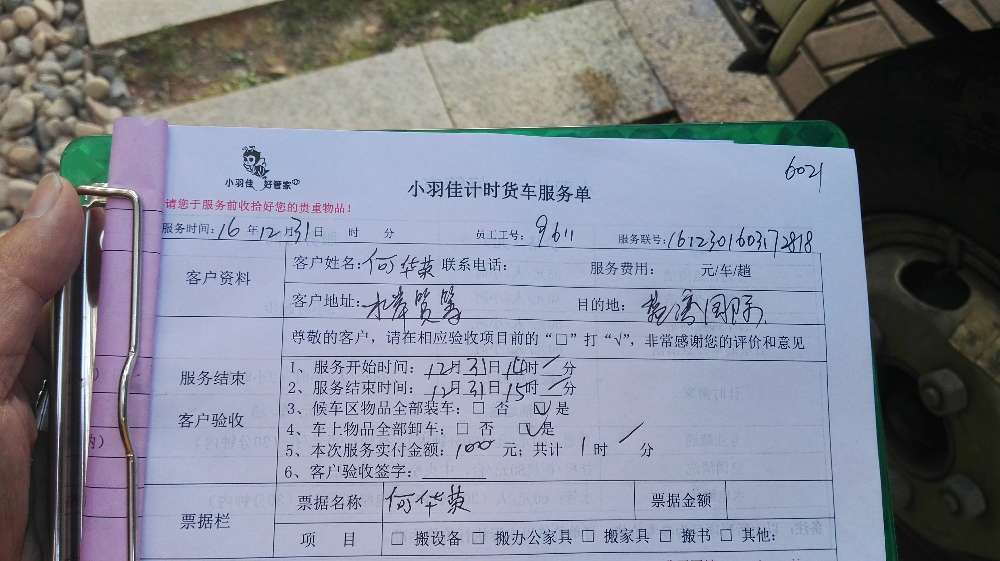 6021
小羽佳 好管家
小羽佳计时货车服务单
请您于服务前收拾好您的贵重物品！
服务时间：16年12月31日 时 分 员工工号：9611 服务联号：1612301603172818
客户资料
客户姓名：何华荣 联系电话： 服务费用： 元/车/趟
客户地址：水岸 目的地：国际
服务结束
客户验收
尊敬的客户，请在相应验收项目前的“□”打“√”，非常感谢您的评价和意见
1、服务开始时间：12月31日14时/分
2、服务结束时间：12月31日15时/分
3、候车区物品全部装车：□ 否 ☑是
4、车上物品全部卸车：□ 否 ☑是
5、本次服务实付金额：100元；共计 1时 / 分
6、客户验收签字：
票据栏
票据名称 何华荣 票据金额
项 目 □ 搬设备 □ 搬办公家具 □ 搬家具 □ 搬书 □ 其他：